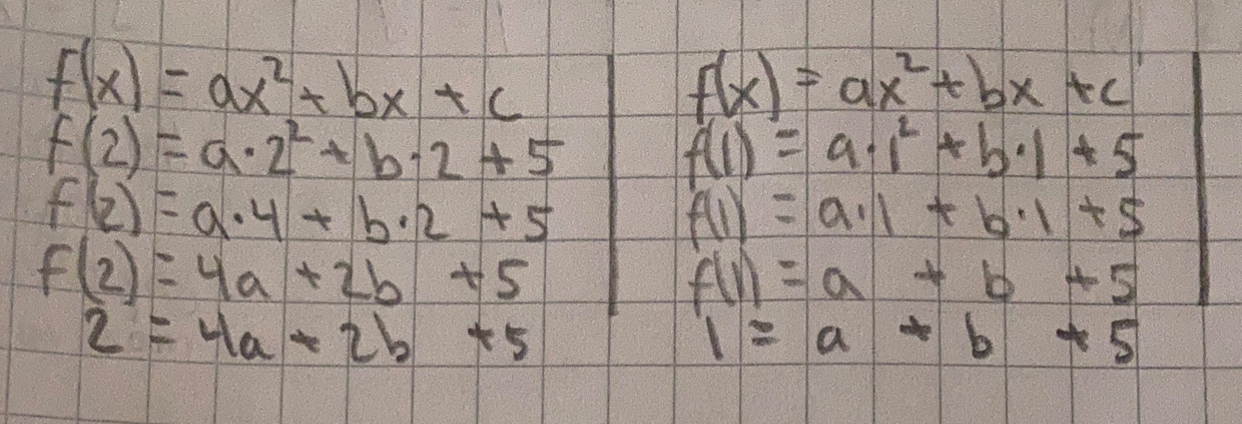 f(x) = ax² + bx + c
f(2) = a·2² + b·2 + 5
f(2) = a·4 + b·2 + 5
f(2) = 4a + 2b + 5
2 = 4a + 2b + 5
f(x) = ax² + bx + c
f(1) = a·1² + b·1 + 5
f(1) = a·1 + b·1 + 5
f(1) = a + b + 5
1 = a + b + 5